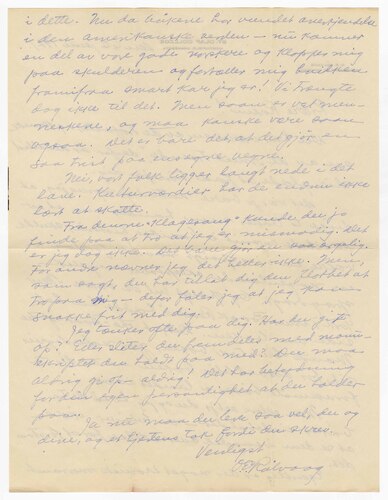 i dette. Nu da bøkene har vundet anerkjendelse
i den amerikanske verden – nu kommer
en del av vore gode norskere og klapper mig
paa skulderen og fortæller mig hvilken
framifraa smart kar jeg er! Vi trængte
dog ikke til det. Men saan er vel men-
neskene, og maa kanske være saan
ogsaa. Det er bare det, at det gjør en
saa trist paa ens egne vegne.
Nei, vort folk ligger langt nede i det
hele. Kulturværdier har de endnu ikke
lært at skatte.
Fra denne "Klagesang" kunde du jo
finde paa at tro at jeg er mismodig. Det
er jeg dog ikke. Det hele gjør en saa
For andre nævner jeg det heller ikke. Men,
som sagt, du har tillat dig den Storhet at
tro paa mig – derfor føler jeg at jeg kan
snakke frit med dig.
Jeg tænker ofte paa dig. Har du git
op? Eller sliter du fremdeles med manu-
skriptet du holdt paa med? Du maa
aldrig gi op – aldrig! Det har betydning
for din egen personlighet at du holder
paa.
Ja nu maa du lek saa vel, du og
dine, og et hjertens tak fordi du skrev.
Venligst
O. E. Rölvaag